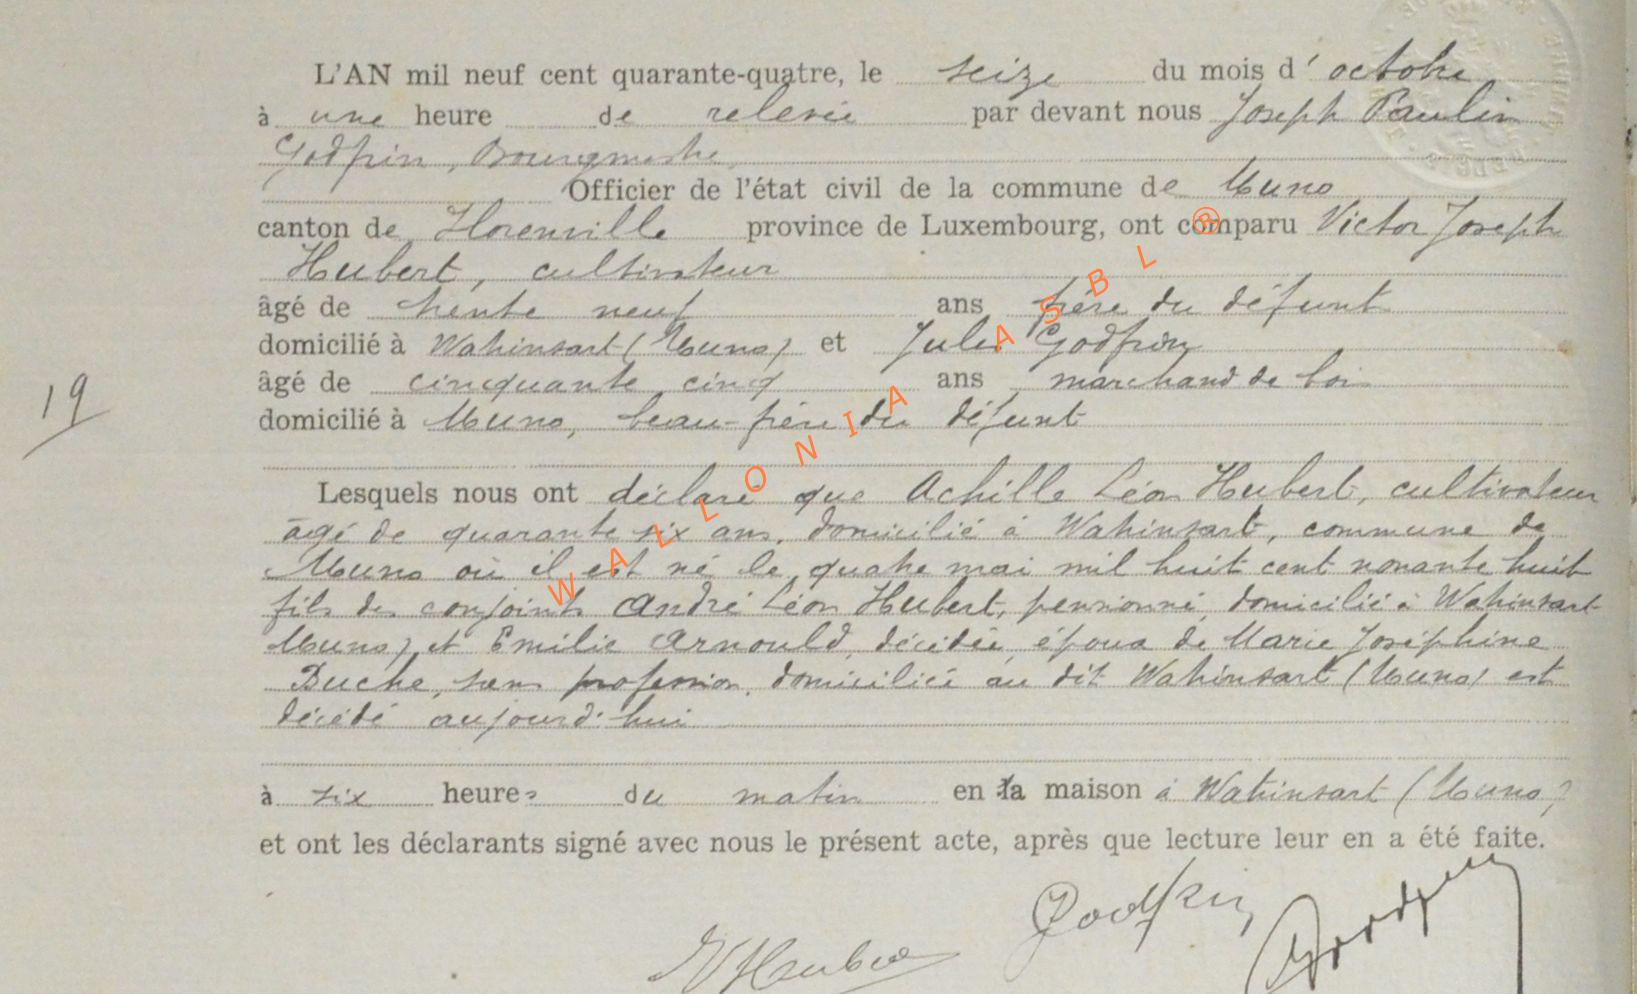 L'AN mil neuf cent quarante-quatre, le seize du mois d'octobre
à une heure de relevée par devant nous Joseph Paulin
Godfrin, Bourgmestre
Officier de l'état civil de la commune de Muno
canton de Florenville province de Luxembourg, ont comparu Victor Joseph
Hubert, cultivateur
âgé de trente neuf ans frère du défunt
domicilié à Wahinsart (Muno) et Jules Godfrin
âgé de cinquante cinq ans marchand de bois
domicilié à Muno, beau-frère du défunt
19
Lesquels nous ont déclaré que Achille Léon Hubert, cultivateur
âgé de quarante six ans, domicilié à Wahinsart, commune de
Muno où il est né le quatre mai mil huit cent nonante huit
fils des conjoints André Léon Hubert, pensionné, domicilié à Wahinsart
Muno) et Emilie Arnould, décédée, époux de Marie Joséphine
Buche, sans profession, domiciliée au dit Wahinsart (Muno) est
décédé aujourd'hui
à six heures du matin en la maison à Wahinsart (Muno)
et ont les déclarants signé avec nous le présent acte, après que lecture leur en a été faite.
Godfrin
VHubert
WALLONIA ASBL ®